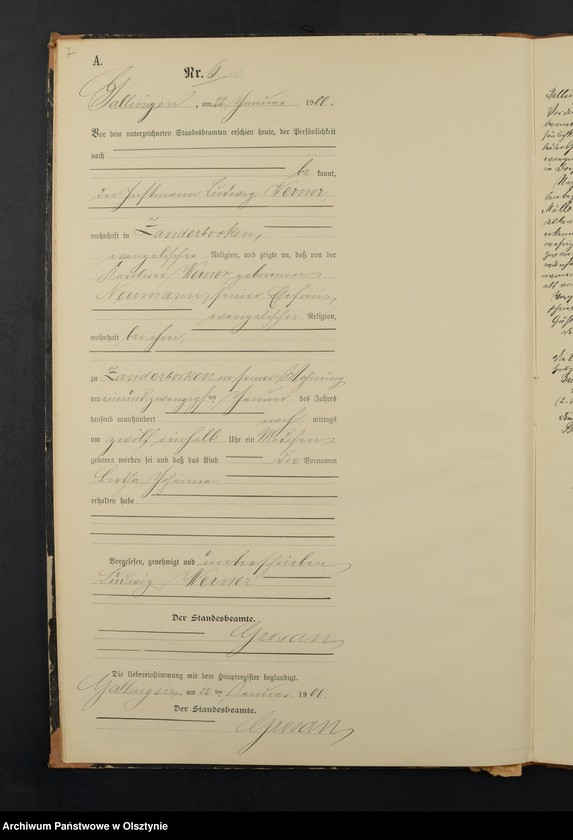 7
A.
Nr. 6
Gallingen, am 22. Januar 1900.
Vor dem unterzeichneten Standesbeamten erschien heute, der Persönlichkeit
nach
be kannt,
der Instmann Ludwig Werner,
wohnhaft in Zanderborken,
evangelischer Religion, und zeigte an, daß von der
Karoline Werner geborenen
Neumann, seiner Ehefrau,
evangelischer Religion,
wohnhaft bei ihm,
zu Zanderborken in seiner Wohnung
am einundzwanzigsten Januar des Jahres
tausend neunhundert nach mittags
um zwölf einhalb Uhr ein Mädchen
geboren worden sei und daß das Kind die Vornamen
Bertha Johanna
erhalten habe
Vorgelesen, genehmigt und unterschrieben
Ludwig Werner
Der Standesbeamte.
Grosan
Die Uebereinstimmung mit dem Hauptregister beglaubigt.
Gallingen, am 22 ten Januar 1900.
Der Standesbeamte.
Grosan
Archiwum Państwowe w Olsztynie